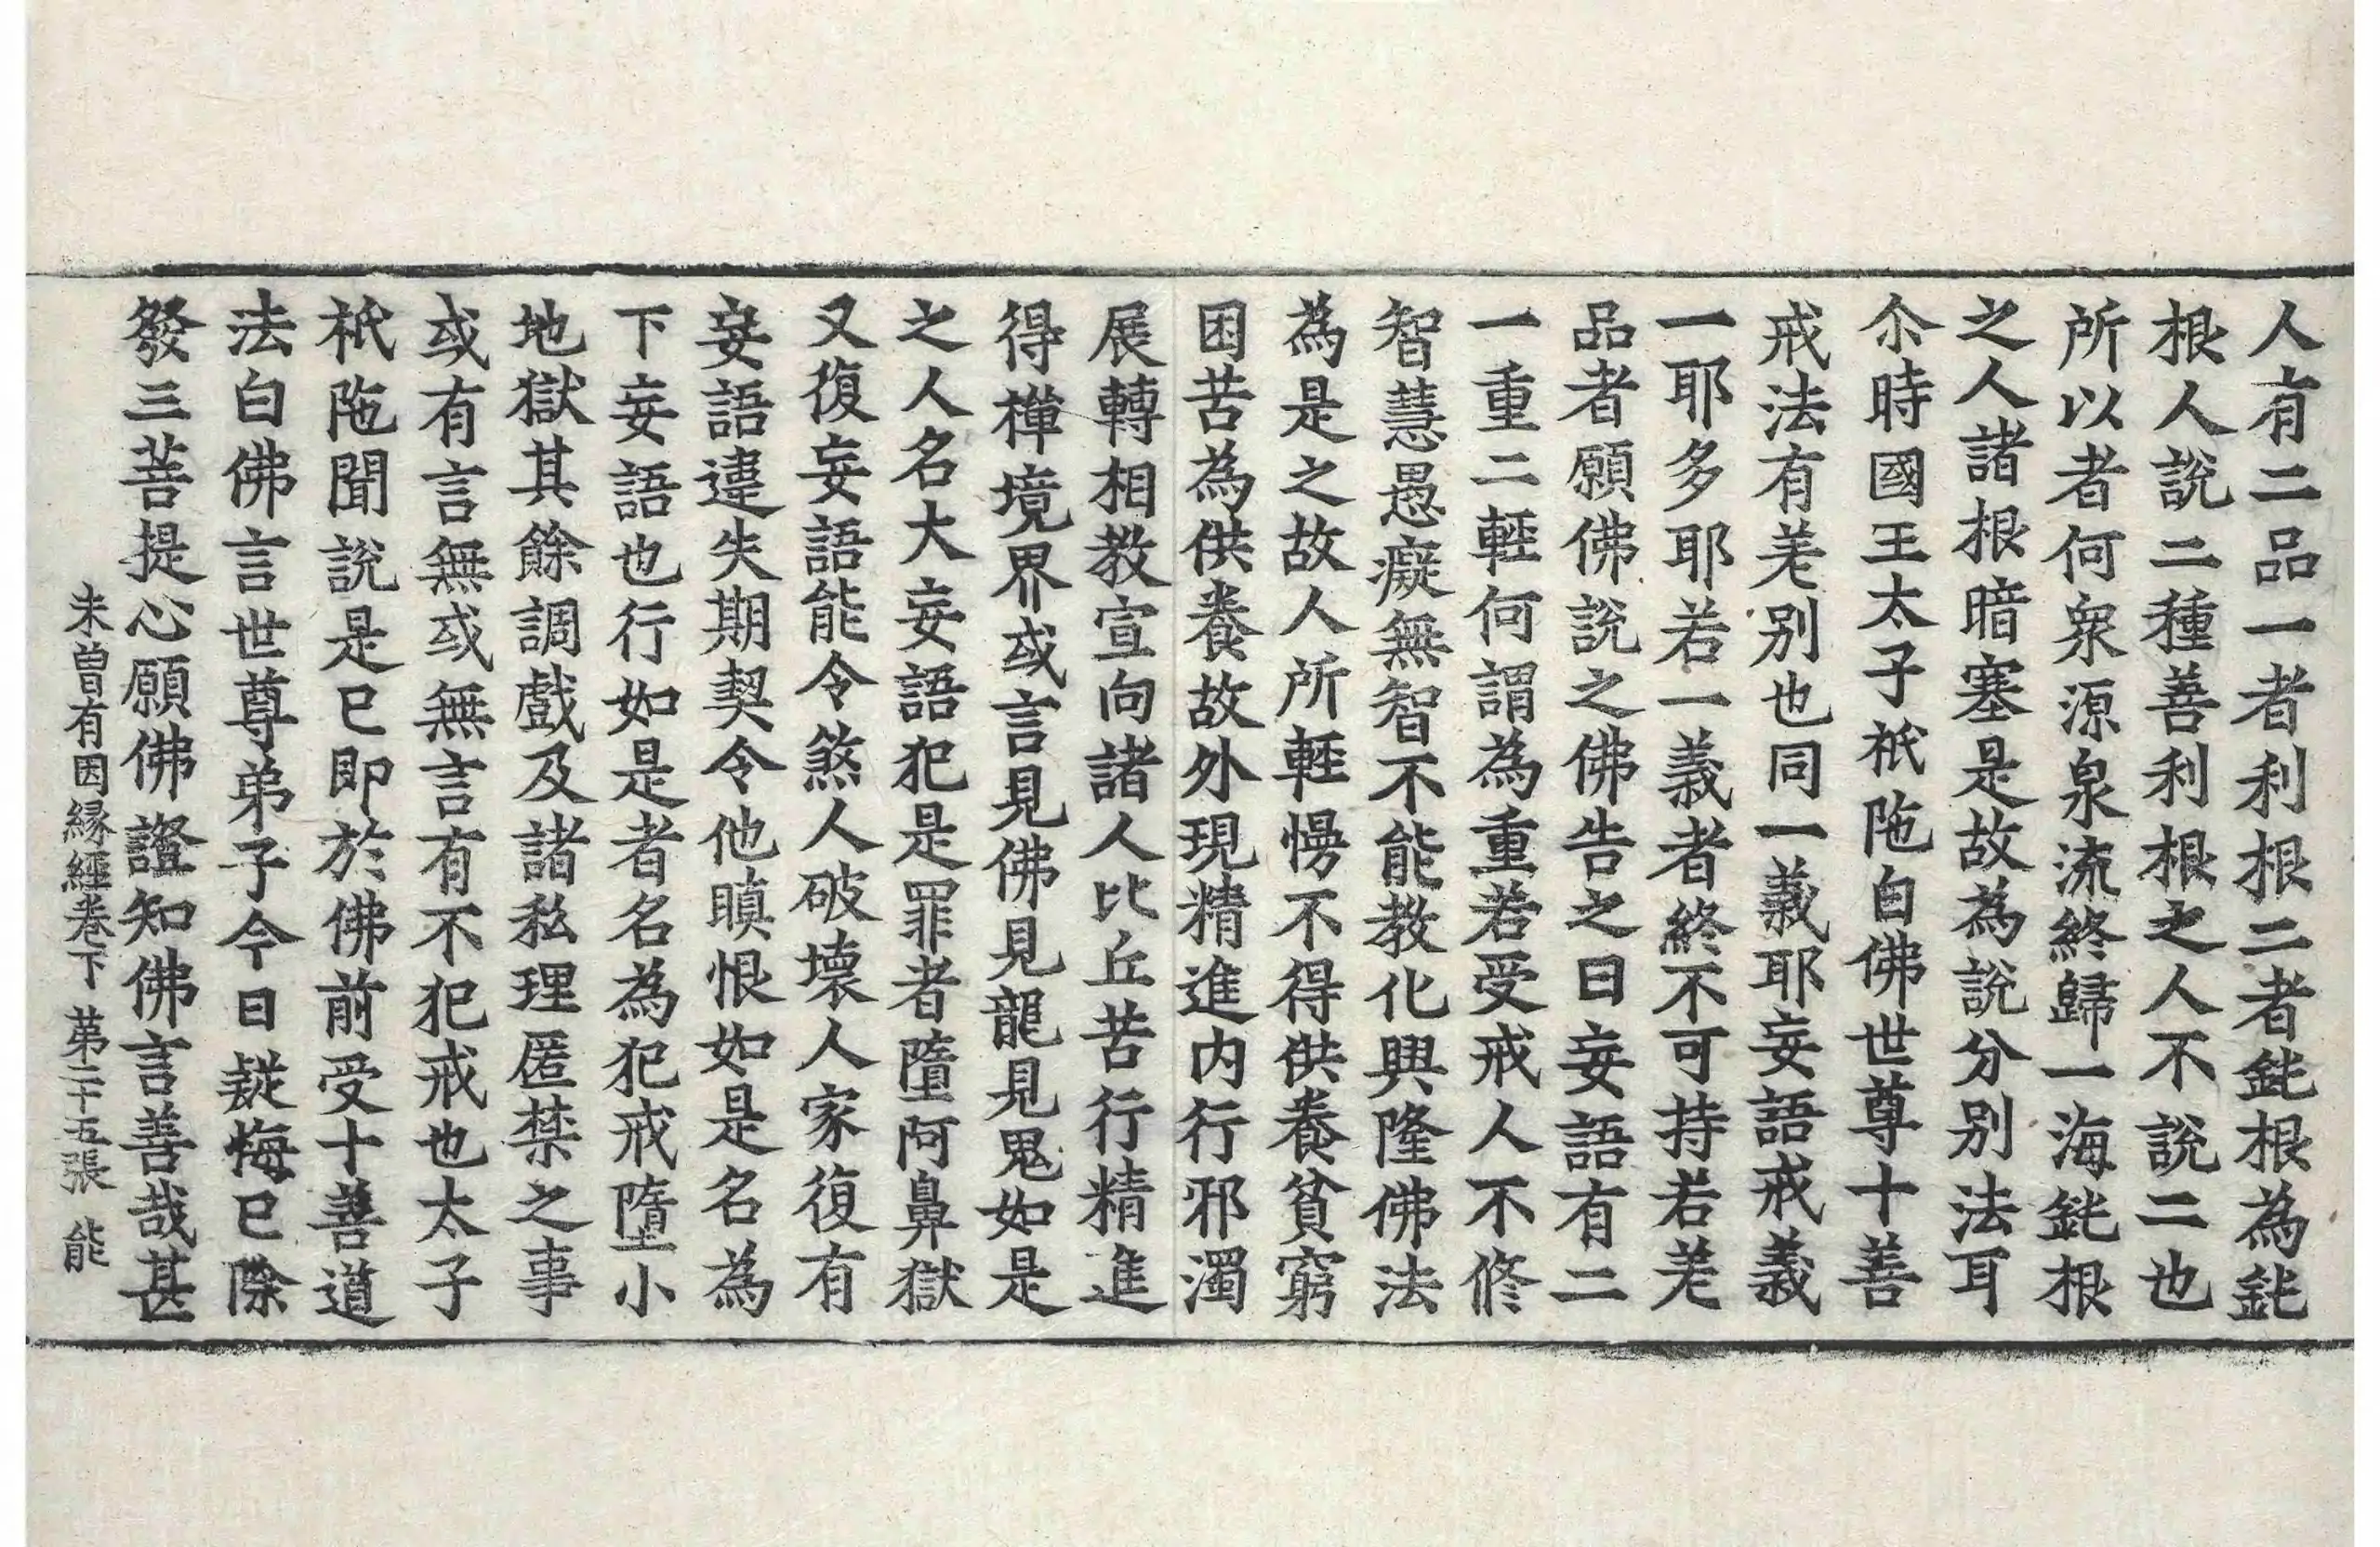 人有二品一者利根二者鈍根為鈍
根人說二種善利根之人不說二也
所以者何眾源泉流終歸一海鈍根
之人諸根暗塞是故為說分別法耳
尒時國王太子祇陁白佛世尊十善
戒法有差別也同一義耶妄語戒義
一耶多耶若一義者終不可持若差
品者願佛說之佛告之曰妄語有二
一重二輕何謂為重若受戒人不修
智慧愚癡無智不能教化興隆佛法
為是之故人所輕慢不得供養貧窮
困苦為供養故外現精進内行邪濁
展轉相教宣向諸人比丘苦行精進
得禪境界或言見佛見龍見鬼如是
之人名大妄語犯是罪者墮阿鼻獄
又復妄語能令煞人破壞人家復有
妄語違失期契令他瞋恨如是名為
下妄語也行如是者名為犯戒墮小
地獄其餘調戲及諸私理匿禁之事
或有言無或無言有不犯戒也太子
祇陁聞說是已即於佛前受十善道
法白佛言世尊弟子今日疑悔已除
發三菩提心願佛證知佛言善哉甚
未曾有因緣經卷下 第二十五張 能